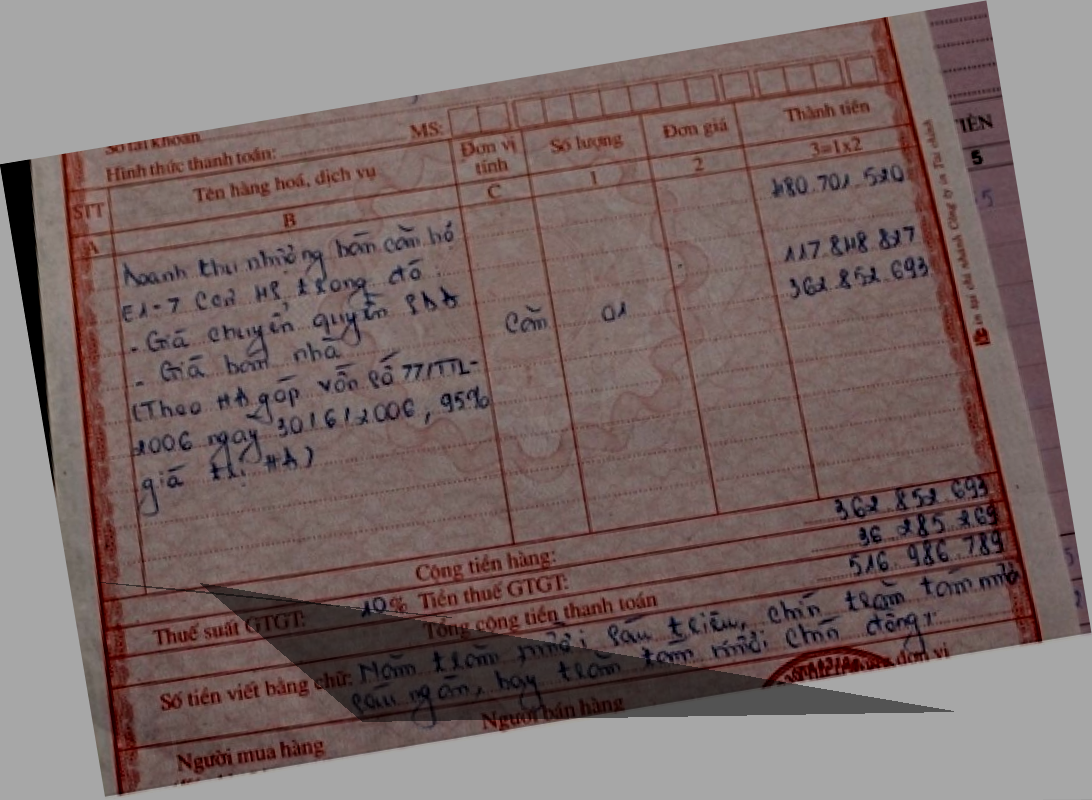 Số tài khoản
Hình thức thanh toán: MS:
STT Tên hàng hoá, dịch vụ Đơn vị tính Số lượng Đơn giá Thành tiền
A B C 1 2 3=1x2
Doanh thu nhượng bán căn hộ 480.701.520
E1-7 CC2 MS, trong đó
- Giá chuyển quyền SDĐ 117.848.827
- Giá bán nhà Căn 01 362.852.693
(Theo HĐ góp vốn số 77/TTL-
2006 ngày 30/6/2006, 95%
giá trị HĐ)
Cộng tiền hàng: 362.852.693
Thuế suất GTGT: 10% Tiền thuế GTGT: 36.285.269
Tổng cộng tiền thanh toán 516.986.789
Số tiền viết bằng chữ: Năm trăm mười sáu triệu, chín trăm tám mươi
sáu ngàn, bảy trăm tám mươi chín đồng.
Người mua hàng Người bán hàng đơn vị
TIỀN
5